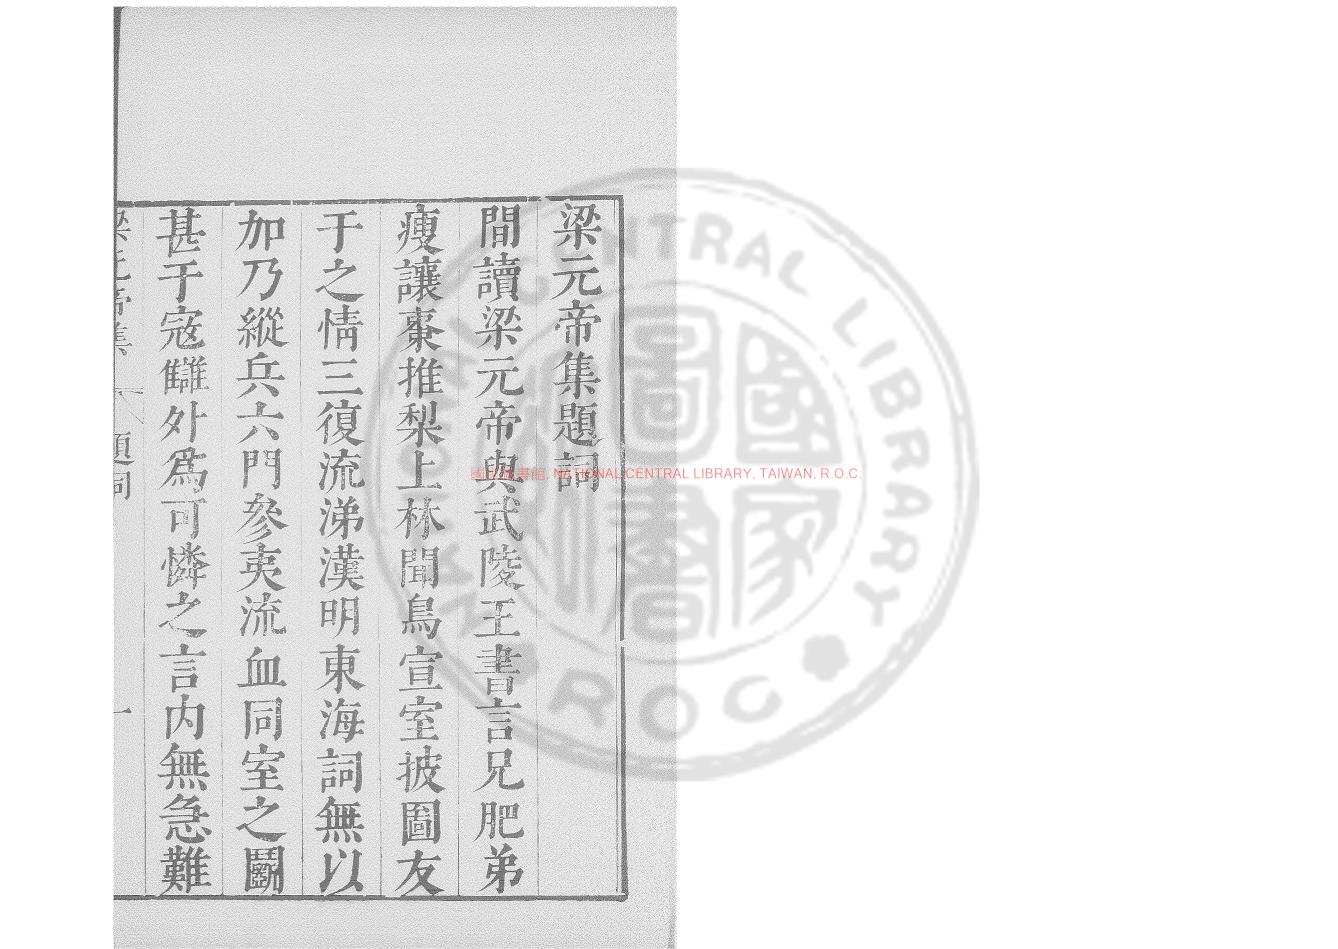 梁元帝集題詞
間讀梁元帝與武陵王書言兄肥弟
瘦讓棗推梨上林聞鳥宣室披圖友
于之情三復流涕漢明東海詞無以
加乃縱兵六門參夷流血同室之鬬
甚于寇讎外爲可憐之言内無急難
梁元帝集
題詞
一
國家圖書館, NATIONAL CENTRAL LIBRARY, TAIWAN, R.O.C.
NATIONAL CENTRAL LIBRARY
R O C
國家圖書